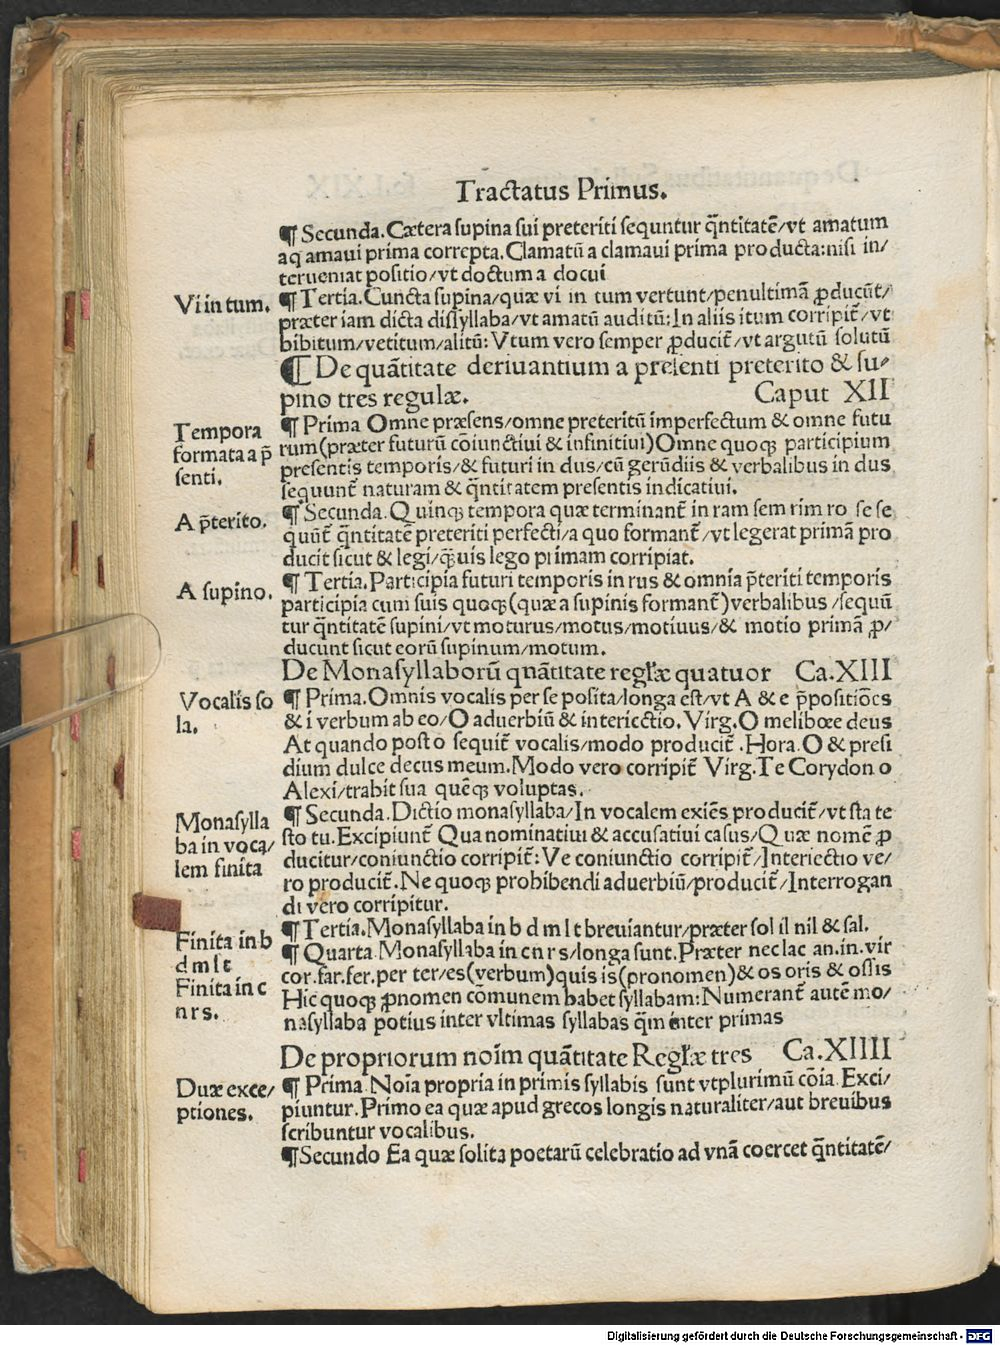 Tractatus Primus.
¶ Secunda. Cætera supina sui preteriti sequntur q̃ntitatẽ/vt amatum
aq amaui prima correpta. Clamatũ a clamaui prima producta: nisi in/
terueniat positio/vt doctum a docui
Vi in tum.
¶ Tertia. Cuncta supina/quæ vi in tum vertunt/penultimã ꝓducũt/
præter iam dicta dissyllaba/vt amatũ auditũ: In aliis itum corripit̃/vt
bibitum/vetitum/alitũ: Vtum vero semper ꝓducit̃/vt argutũ solutũ
¶ De quãtitate deriuantium a presenti preterito & su/
pino tres regulæ. Caput XII
Tempora
formata a p̃
senti.
¶ Prima Omne præsens/omne preteritũ imperfectum & omne futu
rum(præter futurũ cõiunctiui & infinitiui)Omne quoqꝫ participium
presentis temporis/& futuri in dus/cũ gerũdiis & verbalibus in dus
sequunt̃ naturam & q̃ntitatem presentis indicatiui.
A p̃terito.
¶ Secunda. Quinqꝫ tempora quæ terminant̃ in ram sem rim ro se se
quũt̃ q̃ntitatẽ preteriti perfecti/a quo formant̃/vt legerat primã pro
ducit sicut & legi/q̃uis lego primam corripiat.
A supino.
¶ Tertia. Participia futuri temporis in rus & omnia p̃teriti temporis
participia cum suis quoqꝫ(quæ a supinis formant̃)verbalibus/sequũ
tur q̃ntitatẽ supini/vt moturus/motus/motiuus/& motio primã ꝓ/
ducunt sicut eorũ supinum/motum.
De Monasyllaborũ quãtitate regłæ quatuor Ca.XIII
Vocalis so
la.
¶ Prima. Omnis vocalis per se posita/longa est/vt A & e p̃positiões
& i verbum ab eo/O aduerbiũ & interiectio. Virg. O melibœe deus
At quando post o sequit̃ vocalis/modo producit̃. Hora. O & presi
dium dulce decus meum. Modo vero corripit̃ Virg. Te Corydon o
Alexi/trabit sua quẽqꝫ voluptas.
Monasylla
ba in voca/
lem finita
¶ Secunda. Dictio monasyllaba/In vocalem exiẽs producit̃/vt sta te
sto tu. Excipiunt̃ Qua nominatiui & accusatiui casus/Quæ nomẽ ꝓ
ducitur/coniunctio corripit̃: Ve coniunctio corripit̃/Interiectio ve/
ro producit̃. Ne quoqꝫ prohibendi aduerbiũ/producit̃/Interrogan
di vero corripitur.
Finita in b
d m l t
¶ Tertia. Monasyllaba in b d m l t breuiantur/præter sol il nil & sal.
Finita in c
n r s.
¶ Quarta Monasyllaba in c n r s/longa sunt. Præter nec lac an.in.vir
cor.far.fer.per ter/es(verbum)quis is(pronomen)& os oris & ossis
Hic quoqꝫ ꝓnomen cõmunem habet syllabam: Numerant̃ autẽ mo/
nasyllaba potius inter vltimas syllabas q̃m inter primas
De propriorum noĩm quãtitate Regłæ tres Ca.XIIII
Duæ exce/
ptiones.
¶ Prima Noĩa propria in primis syllabis sunt vtplurimũ cõia. Exci/
piuntur. Primo ea quæ apud grecos longis naturaliter/aut breuibus
scribuntur vocalibus.
¶ Secundo Ea quæ solita poetarũ celebratio ad vnã coercet q̃ntitatẽ/
Digitalisierung gefördert durch die Deutsche Forschungsgemeinschaft - DFG